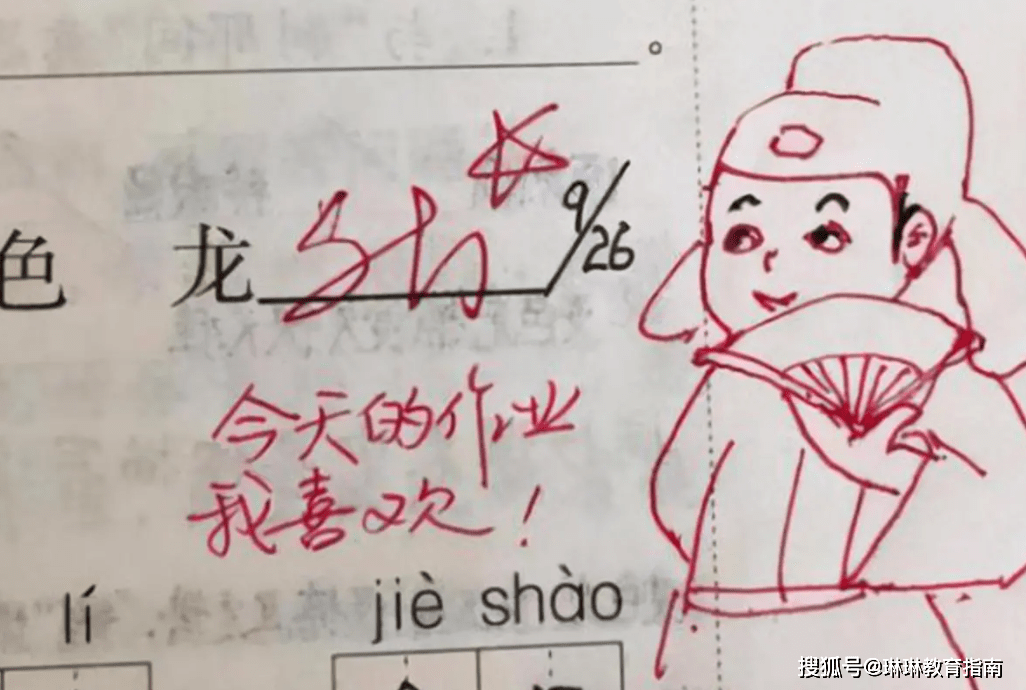 。
色 龙
9/26
今天的作业
我喜欢！
lí jiè shào
搜狐号@琳琳教育指南